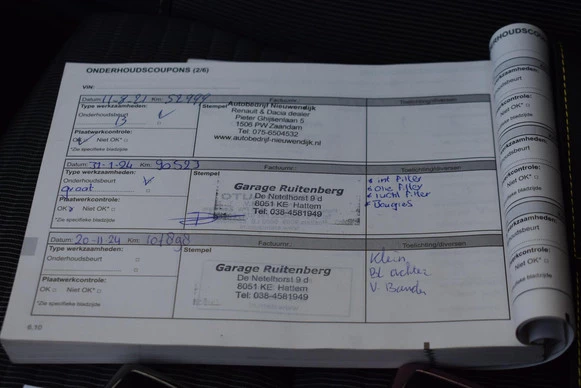 ONDERHOUDSCOUPONS (2/6)
VIN:
Datum: 11-8-21 Km: 52998 Factuurnr.: Toelichting/diversen
Type werkzaamheden: Stempel
Onderhoudsbeurt
Autobedrijf Nieuwendijk
Renault & Dacia dealer
Pieter Ghijsenlaan 5
1506 PW Zaandam
Tel. 075-6504532
www.autobedrijf-nieuwendijk.nl
Plaatwerkcontrole:
OK Niet OK*
*Zie specifieke bladzijde
Datum: 31-1-24 Km: 90523 Factuurnr.: Toelichting/diversen
Type werkzaamheden: Stempel
Onderhoudsbeurt
groot
Garage Ruitenberg
De Netelhorst 9 d
8051 KE Hattem
Tel: 038-4581949
* int filter
* olie filter
* lucht filter
* Bougies
Plaatwerkcontrole:
OK Niet OK*
*Zie specifieke bladzijde
Datum: 20-11-24 Km: 101898 Factuurnr.: Toelichting/diversen
Type werkzaamheden: Stempel
Onderhoudsbeurt
Garage Ruitenberg
De Netelhorst 9 d
8051 KE Hattem
Tel: 038-4581949
Klein
Bl achter
V. Banden
Plaatwerkcontrole:
OK Niet OK*
*Zie specifieke bladzijde
6.10
ONDERHOUDSC